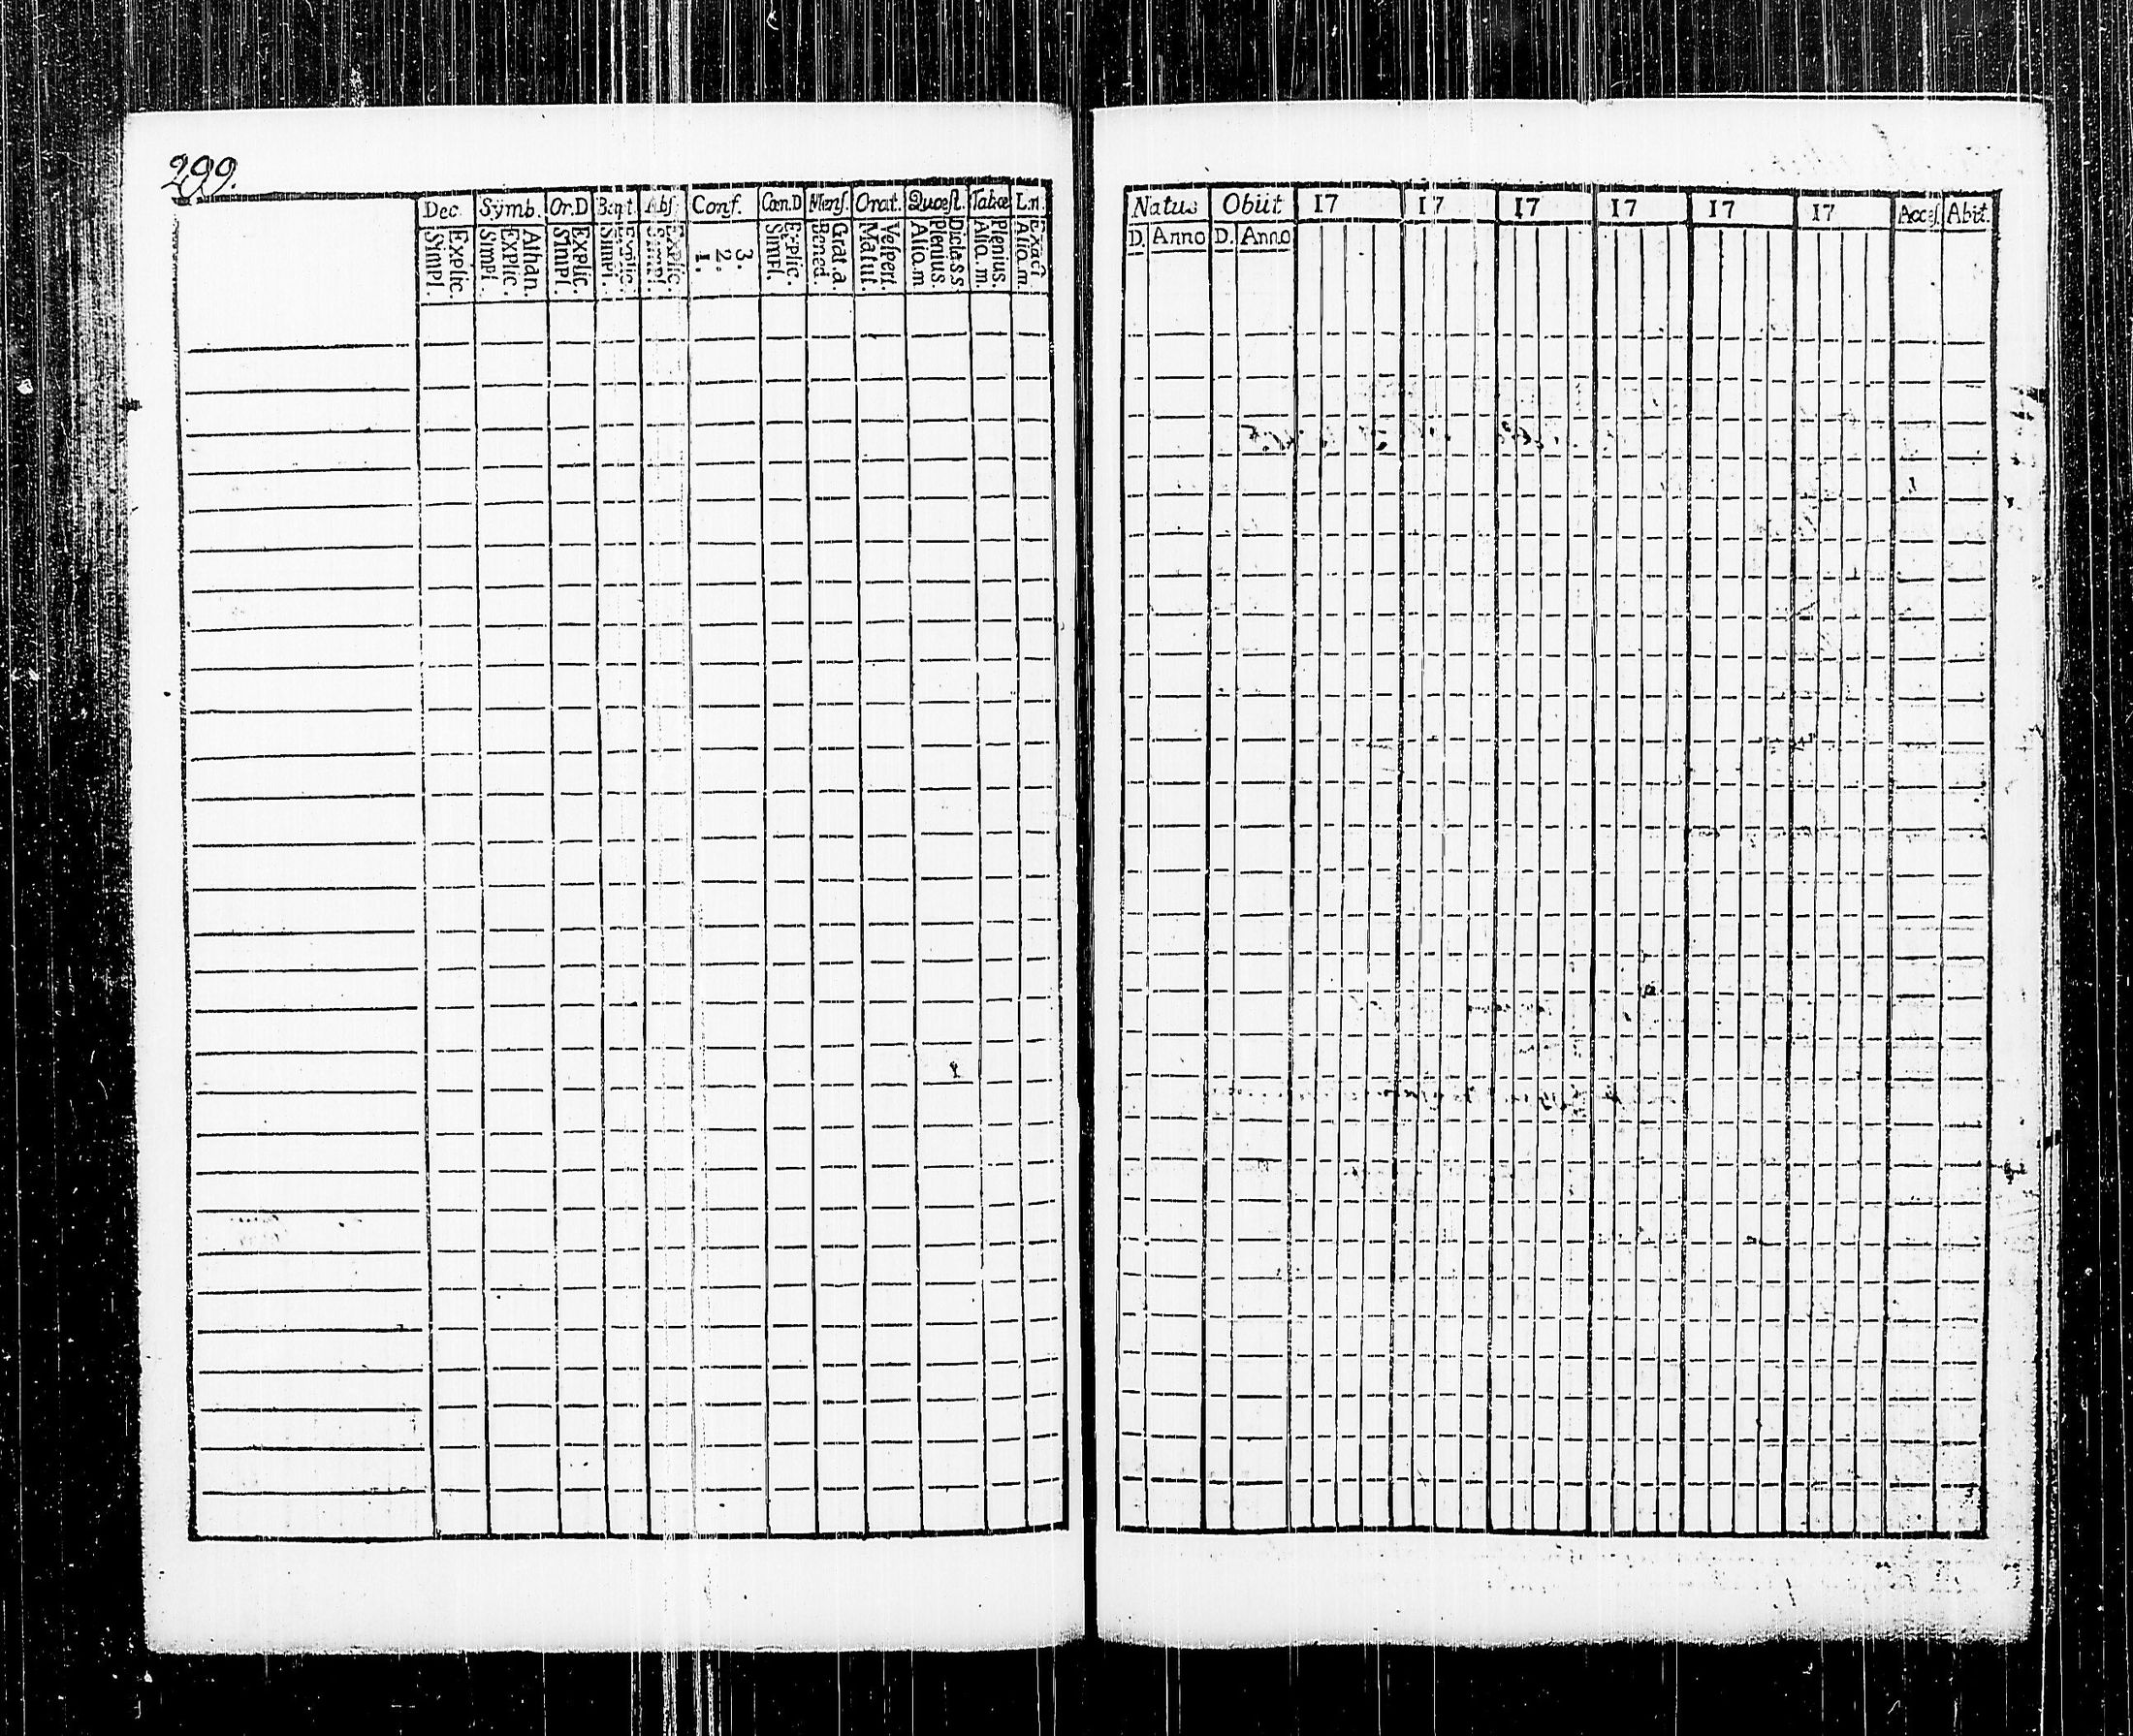 299.
Dec. Symb. Or.D Bapt. Abs. Conf. Cœn.D Mens. Orat. Quæst. Tabæ L.n.
Simpl. Explic. Simpl. Explic. Athan. Simpl. Explic. Simpl. Explic. Simpl. Explic. 1. 2. 3. Simpl. Explic. Bened. Grat.a. Matut. Vespert. Aliq.m Plenius. Dicta.s.s Aliq.m. Plenius. Aliq.m. Exact
Natus Obiit 17 17 17 17 17 17 Acces. Abit.
D. Anno D. Anno